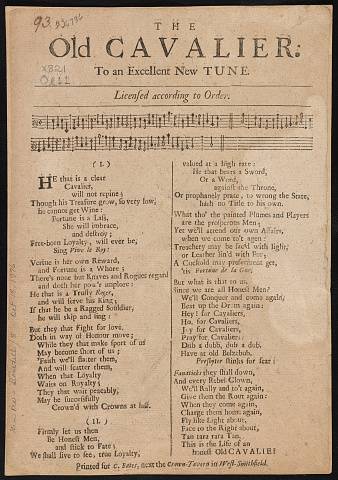 93. 836786
X821
OL12
THE
Old CAVALIER:
To an Excellent New TUNE.
Licensed according to Order.
( I. )
HE that is a clear
Cavalier,
will not repine;
Though his Treasure grow, so very low,
he cannot get Wine:
Fortune is a Lass,
She will imbrace,
and destroy;
Free-born Loyalty, will ever be,
Sing Vive le Roy!
Vertue is her own Reward,
and Fortune is a Whore;
There's none but Knaves and Rogues regard
and doth her pow'r implore:
He that is a Trusty Roger,
and will serve his King;
If that he be a Ragged Souldier,
he will skip and sing:
But they that Fight for love,
Doth in way of Honour move;
While they that make sport of us
May become short of us;
Faith we'll flatter them,
And will scatter them,
When that Loyalty
Waits on Royalty;
They that wait peaceably,
May be successfully
Crown'd with Crowns at last.
( II. )
Firmly let us then
Be Honest Men,
and stick to Fate;
We shall live to see, true Loyalty,
valued at a high rate:
He that bears a Sword,
Or a Word,
against the Throne,
Or prophanely prate, to wrong the State,
hath no Title to his own.
What tho' the painted Plumes and Players
are the prosperous Men;
Yet we'll attend our own Affairs,
when we come to't agen:
Treachery may be fac'd with light,
or Leather lin'd with Fur;
A Cuckold may preferment get,
'tis Fortune de la Gar;
But what is that to us,
Since we are all Honest Men?
We'll Conquer and come again,
Beat up the Drum again:
Hey! for Cavaliers,
Ho, for Cavaliers,
Joy for Cavaliers,
Pray for Cavaliers:
Dub a dubb, dub a dub,
Have at old Belzebub,
Presbyter stinks for fear:
Fanaticks they shall down,
And every Rebel Clown,
We'll Rally and to't again,
Give them the Rout again:
When they come again,
Charge them home again,
Fly like Light about,
Face to the Right about,
Tan tara rara Tan,
This is the Life of an
honest Old CAVALIER!
Printed for C. Bates, next the Crown-Tavern in West-Smithfield.